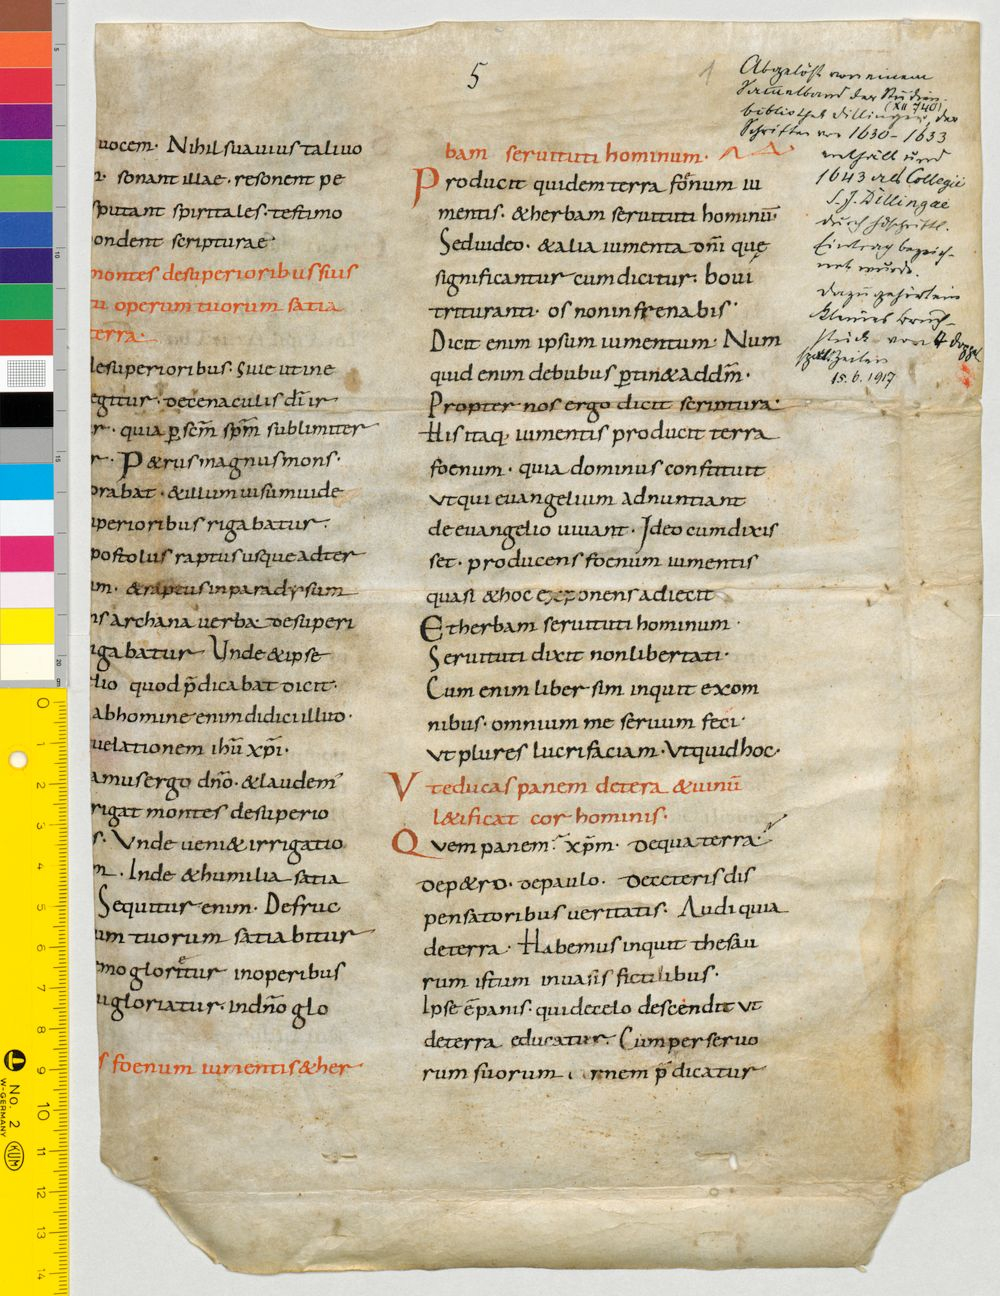 5
1
Abgelöst von einem
Sammelband der Studien-
(XII 740)
bibliothek Dillingen, der
Schriften von 1630-1633
enthält und
1643 als Collegii
S. J. Dillingae
durch hdschriftl.
Eintrag bezeich-
net wurde.
Dazu gehört ein
kleines Bruch-
stück von 4 doppel
spalt. Zeilen
15.6.1917
uocem. Nihil suauius taliuo
sonant illae. resonent pe
sputant spiritales. testimo
ondent scripturae.
montes desuperioribus suis
operum tuorum satia
terra.
desuperioribus. Siue ut ine
egitur. decenaculis dī ir
r. quia ꝑ scm̄ spm̄ sublimiter
r. P&rus magnus mons.
orabat. & illum uisum uide
uperioribus rigabatur.
postolus raptus usque ad ter
um. & raptus in paradysum
ns archana uerba desuperi
igabatur Unde & ipse
lio quod p̄dicabat dicit.
abhomine enim didici illud.
uelationem ihū xp̄i.
amus ergo dn̄o. & laudem
rigat montes desuperio
s. Vnde ueni& irrigatio
m. Inde & humilia satia
Sequitur enim. De fruc
um tuorum satiabitur
emo glorietur in operibus
ui gloriatur. in dn̄o glo
s foenum iumentis & her
bam seruituti hominum.
Producit quidem terra foenum iu
mentis. & herbam seruituti hominū.
Sed uideo. & alia iumenta om̄i quę
significantur cum dicitur. boui
trituranti. os non infrenabis.
Dicit enim ipsum iumentum. Num
quid enim de bubus ꝑtin& ad dm̄.
Propter nos ergo dicit scriptura.
His itaq; iumentis producit terra
foenum. quia dominus constituit
vt qui euangelium adnuntiant
de euangelio uiuant. Ideo cum dixis
set. producens foenum iumentis
quasi & hoc exponens adiecit
Et herbam seruituti hominum.
Seruituti dixit non libertati.
Cum enim liber sim inquit ex om
nibus. omnium me seruum feci.
vt plures lucrifaciam. Vt quid hoc.
Vt educas panem de tera & uinū
l&ificat cor hominis.
Quem panem. xp̄m. De qua terra.
de p&ro. de paulo. de ceteris dis
pensatoribus ueritatis. Audi quia
de terra. Habemus inquit thesau
rum istum in uasis fictilibus.
Ipse ē panis. qui de celo descendit vt
de terra educatur. Cum per seruo
rum suorum carnem p̄dicatur